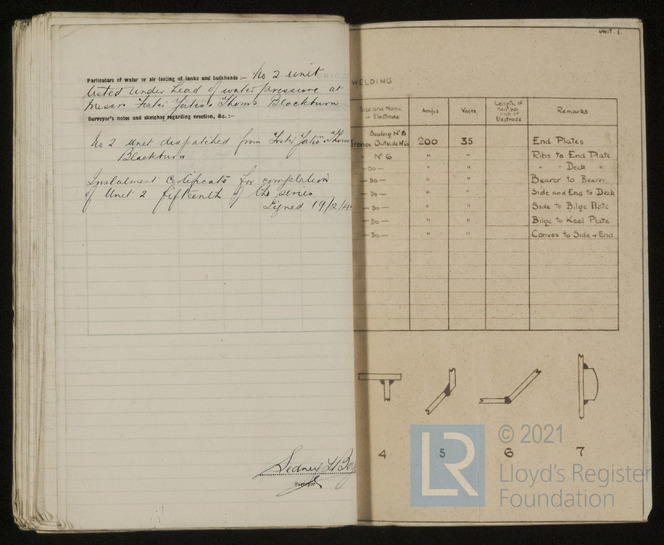 Particulars of water or air testing of tanks and bulkheads :— No 2 unit
tested under head of water pressure at
Messrs Foster Yates & Thoms Blackburn
Surveyor's notes and sketches regarding erection, &c. :—
No 2 unit despatched from Foster Yates & Thoms
Blackburn
Instalment Certificate for completion
of Unit 2 fifteenth of the series
Signed 19/12/
Sedney
Surveyor
UNIT. 1.
WELDING
Size and Name of Electrode Amps Volts Length of Electrode Remarks
Nº 8
Outside Nº 6 200 35 End Plates
" Nº 6 " " Ribs to End Plate
— Do — " " " " Deck "
— Do — " " Bearer to Bearer
— Do — " " Side and End to Deck
— Do — " " Side to Bilge Plate
— Do — " " Bilge to Keel Plate
— Do — " " Convex to Side & End
4 5 6 7
LR © 2021
Lloyd's Register
Foundation